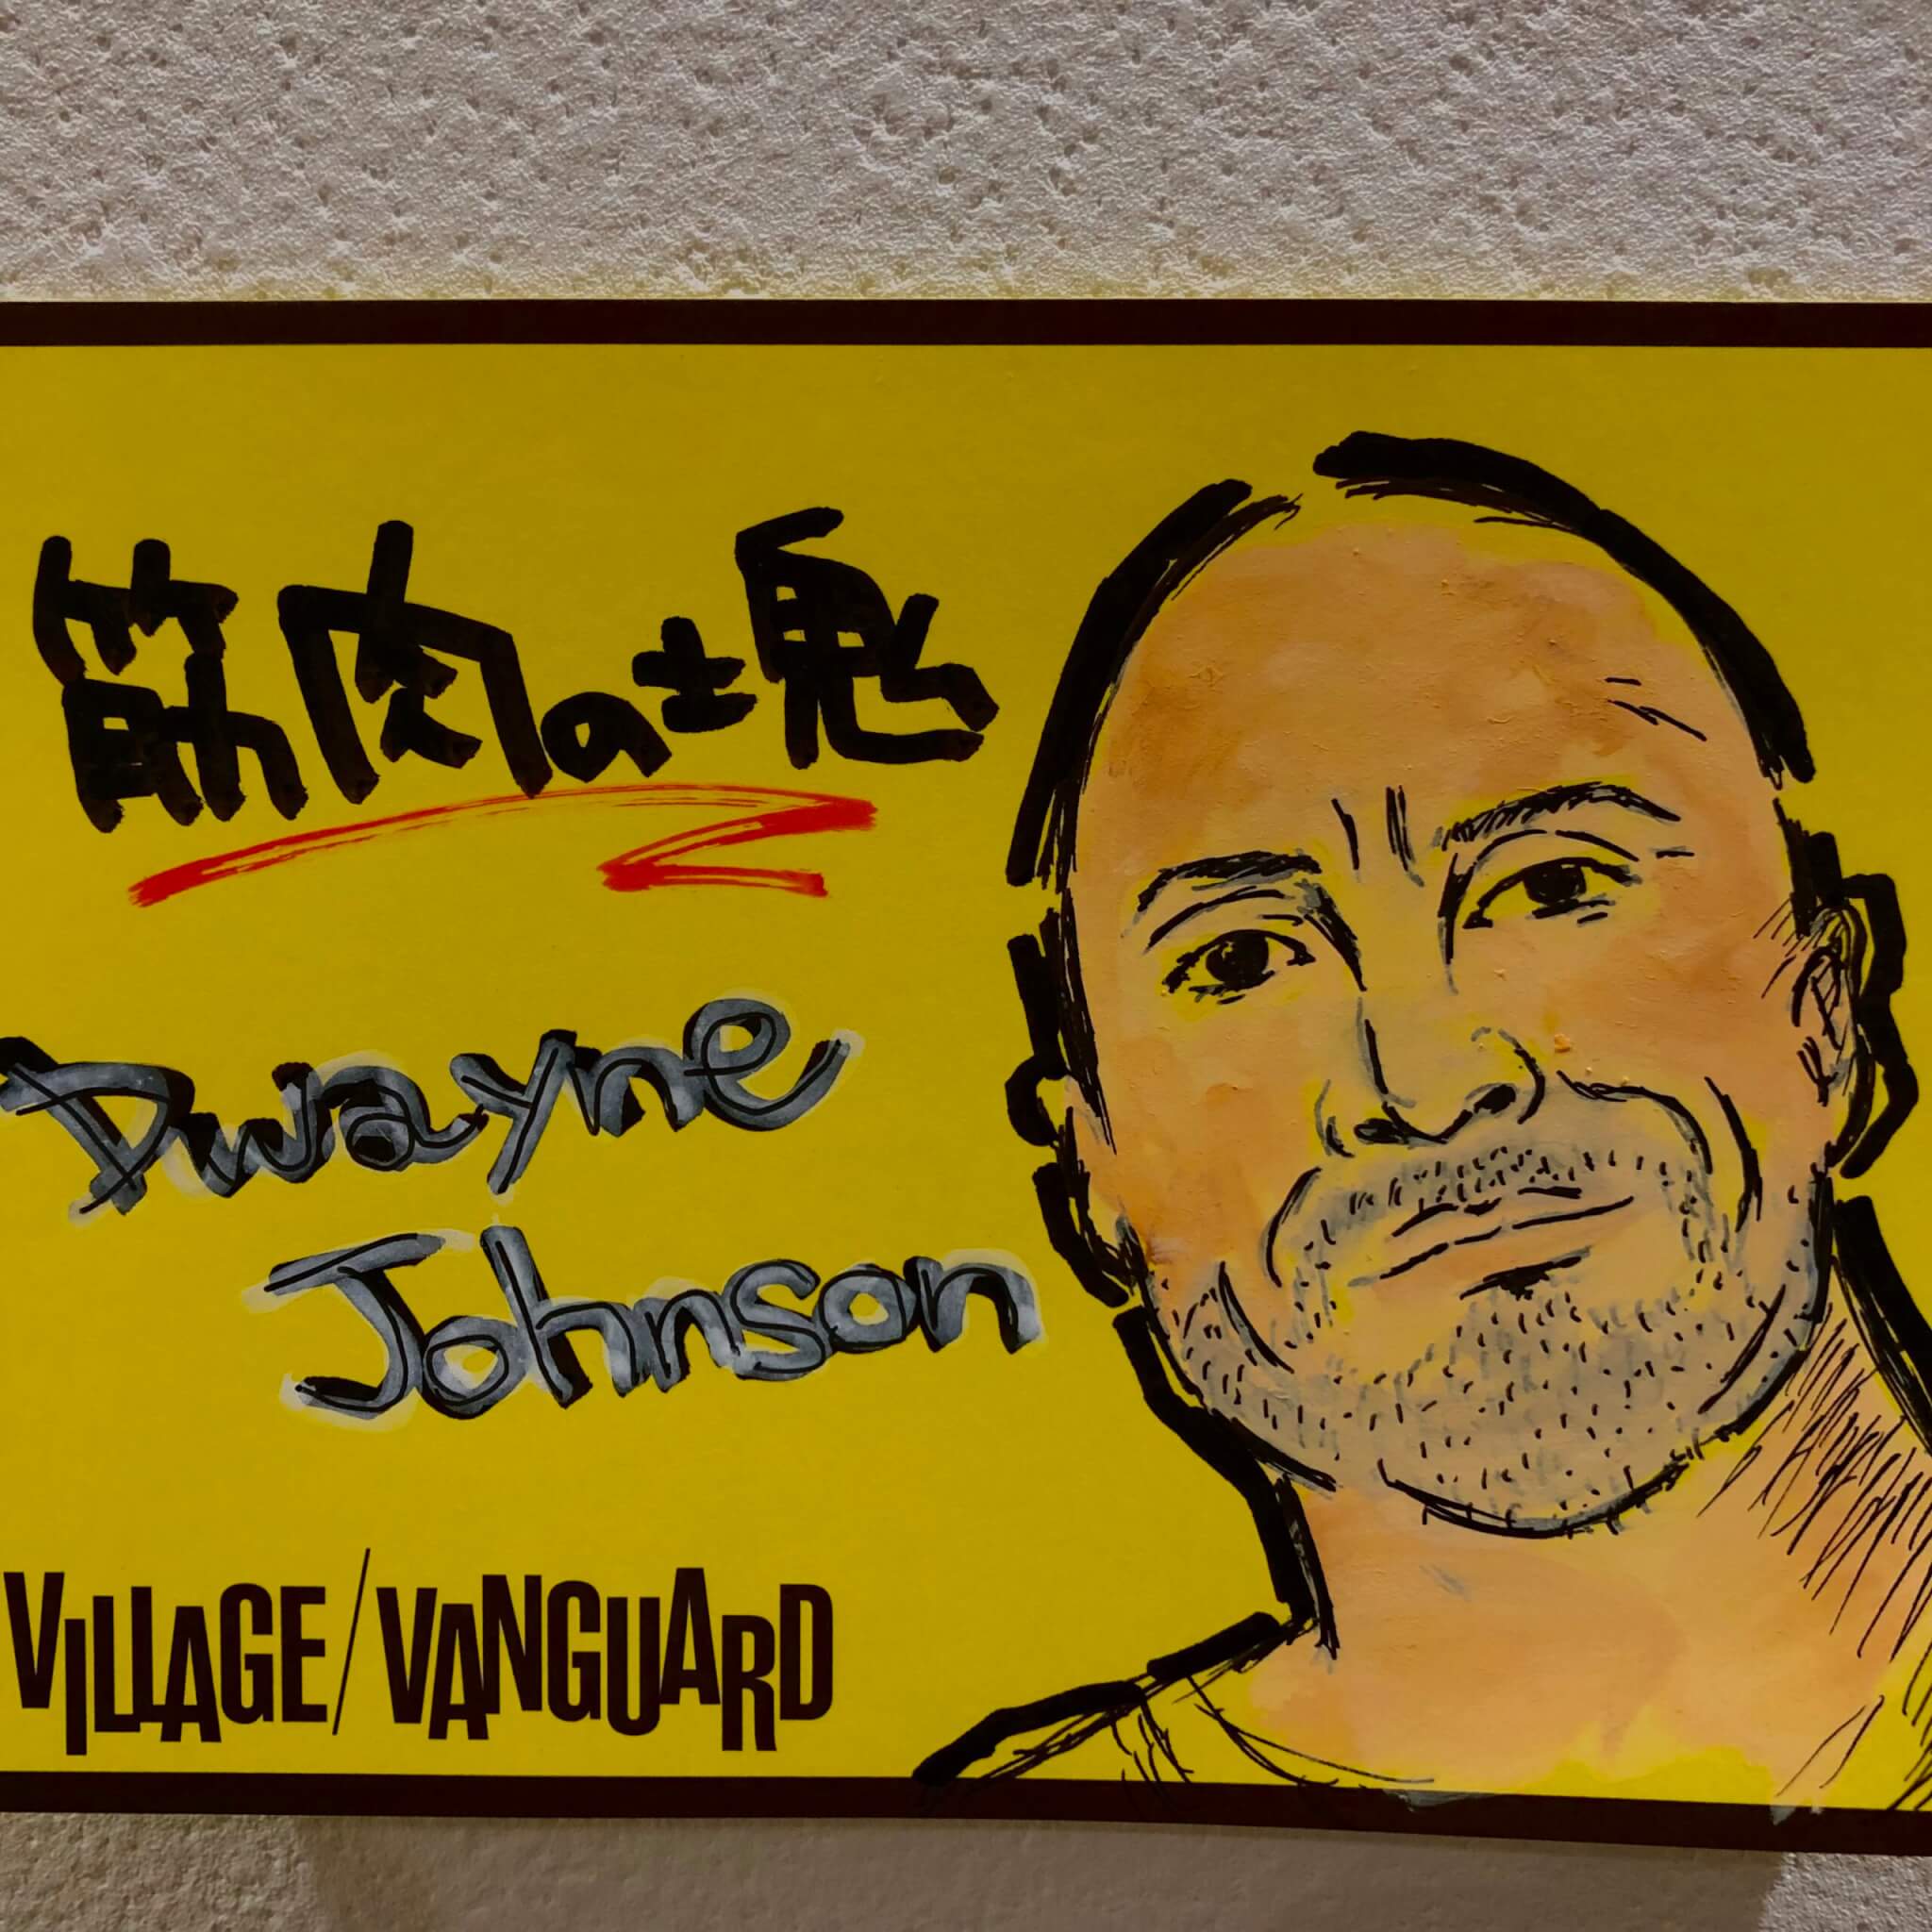 筋肉の塊
Dwayne
Johnson
VILLAGE/VANGUARD